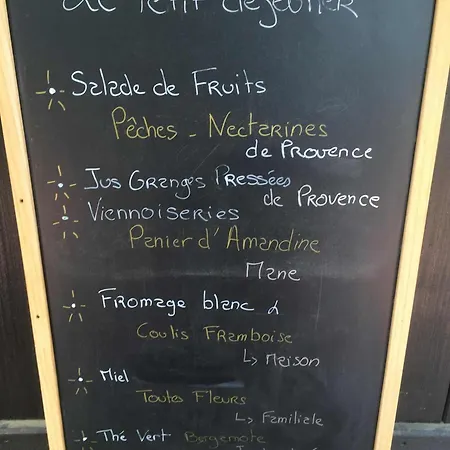 Petit déjeuner
Salade de Fruits
Pêches - Nectarines
de Provence
Jus Oranges Pressées
de Provence
Viennoiseries
Panier d'Amandine
Mane
Fromage blanc &
Coulis Framboise
↳ Maison
Miel
Toutes Fleurs
↳ Familiale
Thé Vert Bergamote